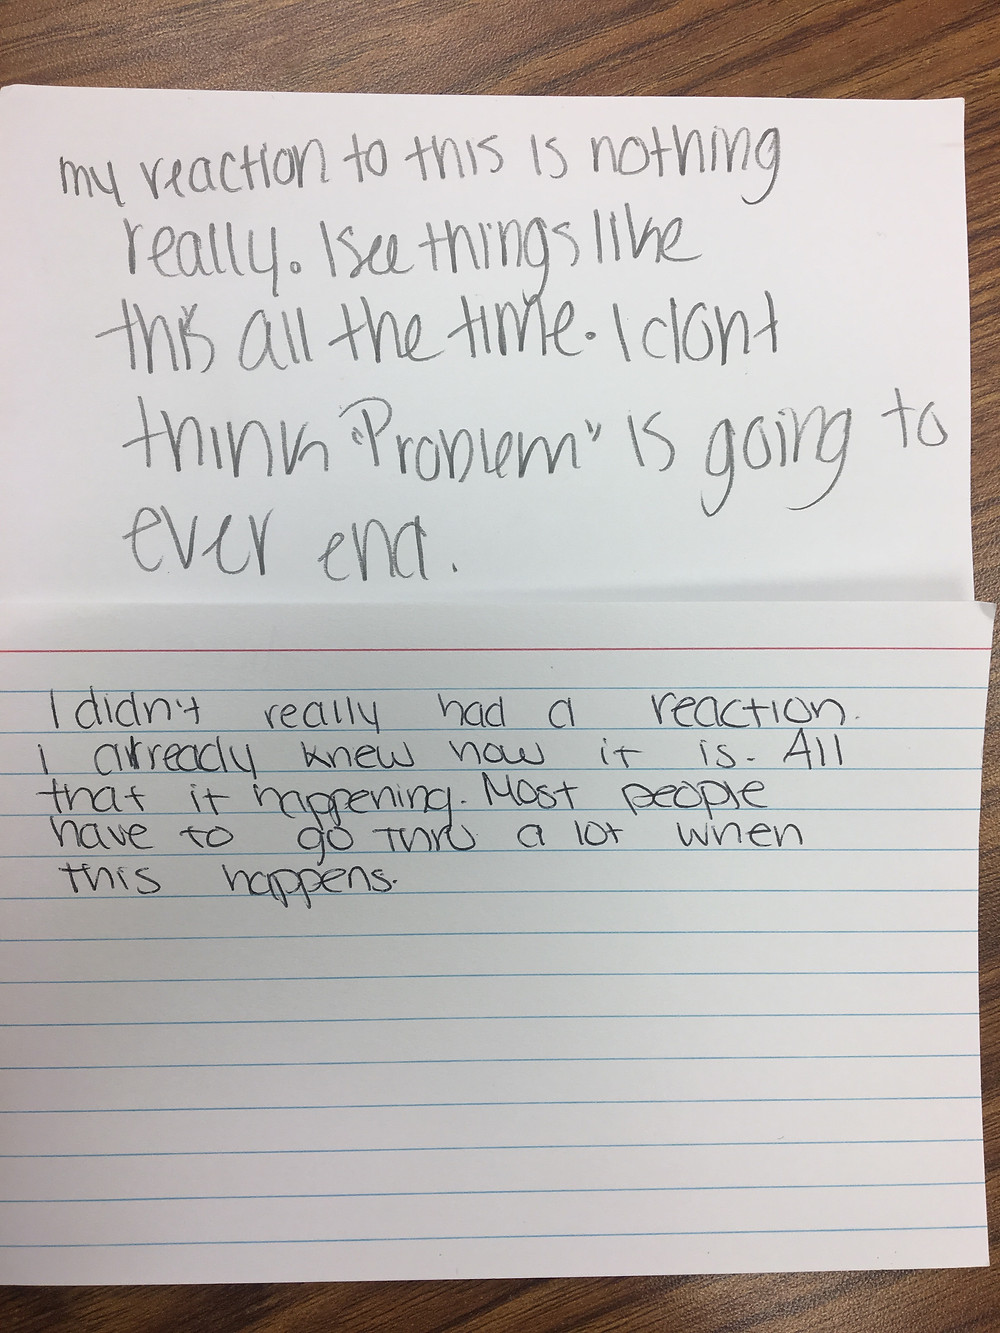 my reaction to this is nothing
really. I see things like
this all the time. I dont
think "Problem" is going to
ever end.
I didn't really had a reaction.
i already knew how it is. All
that it happening. Most people
have to go thru a lot when
this happens.